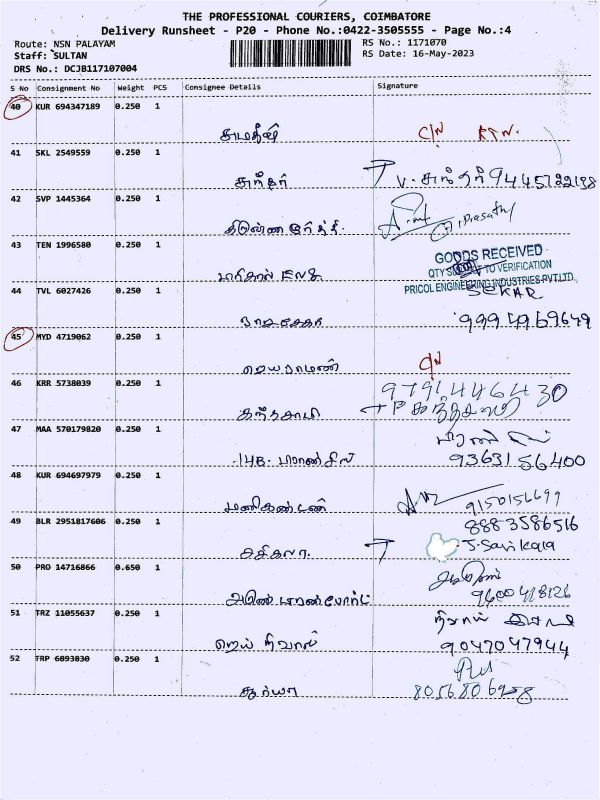 THE PROFESSIONAL COURIERS, COIMBATORE
Delivery Runsheet - P20 - Phone No.:0422-3505555 - Page No.:4
Route: NSN PALAYAM RS No.: 1171070
Staff: SULTAN RS Date: 16-May-2023
DRS No.: DCJB117107004
S No Consignment No Weight PCS Consignee Details Signature
40 KUR 694347189 0.250 1
சுமதீஷ் C/N RTN.
41 SKL 2549559 0.250 1
சுந்தர் V. சுந்தர் 9445722198
42 SVP 1445364 0.250 1
43 TEN 1996580 0.250 1
GOODS RECEIVED
TO VERIFICATION
PRICOL ENGINEERING INDUSTRIES PVT.LTD.,
SEKAR
44 TVL 6027426 0.250 1
ராஜசேகர்
45 MYD 4719062 0.250 1
ஜெயராமன் C/N
46 KRR 5738039 0.250 1
9791446430
கந்தசாமி P கந்தசாமி
47 MAA 570179820 0.250 1
14B. 9363156400
48 KUR 694697979 0.250 1
மணிகண்டன் 9150156699
49 BLR 2951817606 0.250 1
8883586516
சசிகலா. J. Sasikala
50 PRO 14716866 0.650 1
அருண் டிரான்ஸ்போர்ட் 9600418126
51 TRZ 11055637 0.250 1
ஜெய் நிவாஸ் 9047047944
52 TRP 6893830 0.250 1
சூர்யா 8056806958